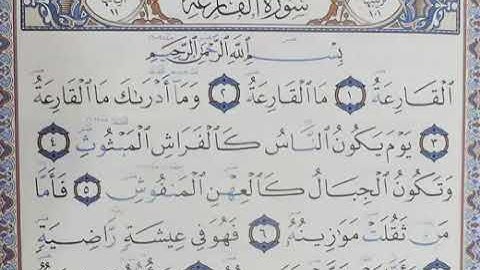 سُورَةُ الْقَارِعَةِ
بِسْمِ اللَّهِ الرَّحْمَٰنِ الرَّحِيمِ
الْقَارِعَةُ ١ مَا الْقَارِعَةُ ٢ وَمَا أَدْرَىٰكَ مَا الْقَارِعَةُ
٣ يَوْمَ يَكُونُ النَّاسُ كَالْفَرَاشِ الْمَبْثُوثِ ٤
وَتَكُونُ الْجِبَالُ كَالْعِهْنِ الْمَنْفُوشِ ٥ فَأَمَّا
مَنْ ثَقُلَتْ مَوَازِينُهُ ٦ فَهُوَ فِي عِيشَةٍ رَاضِيَةٍ